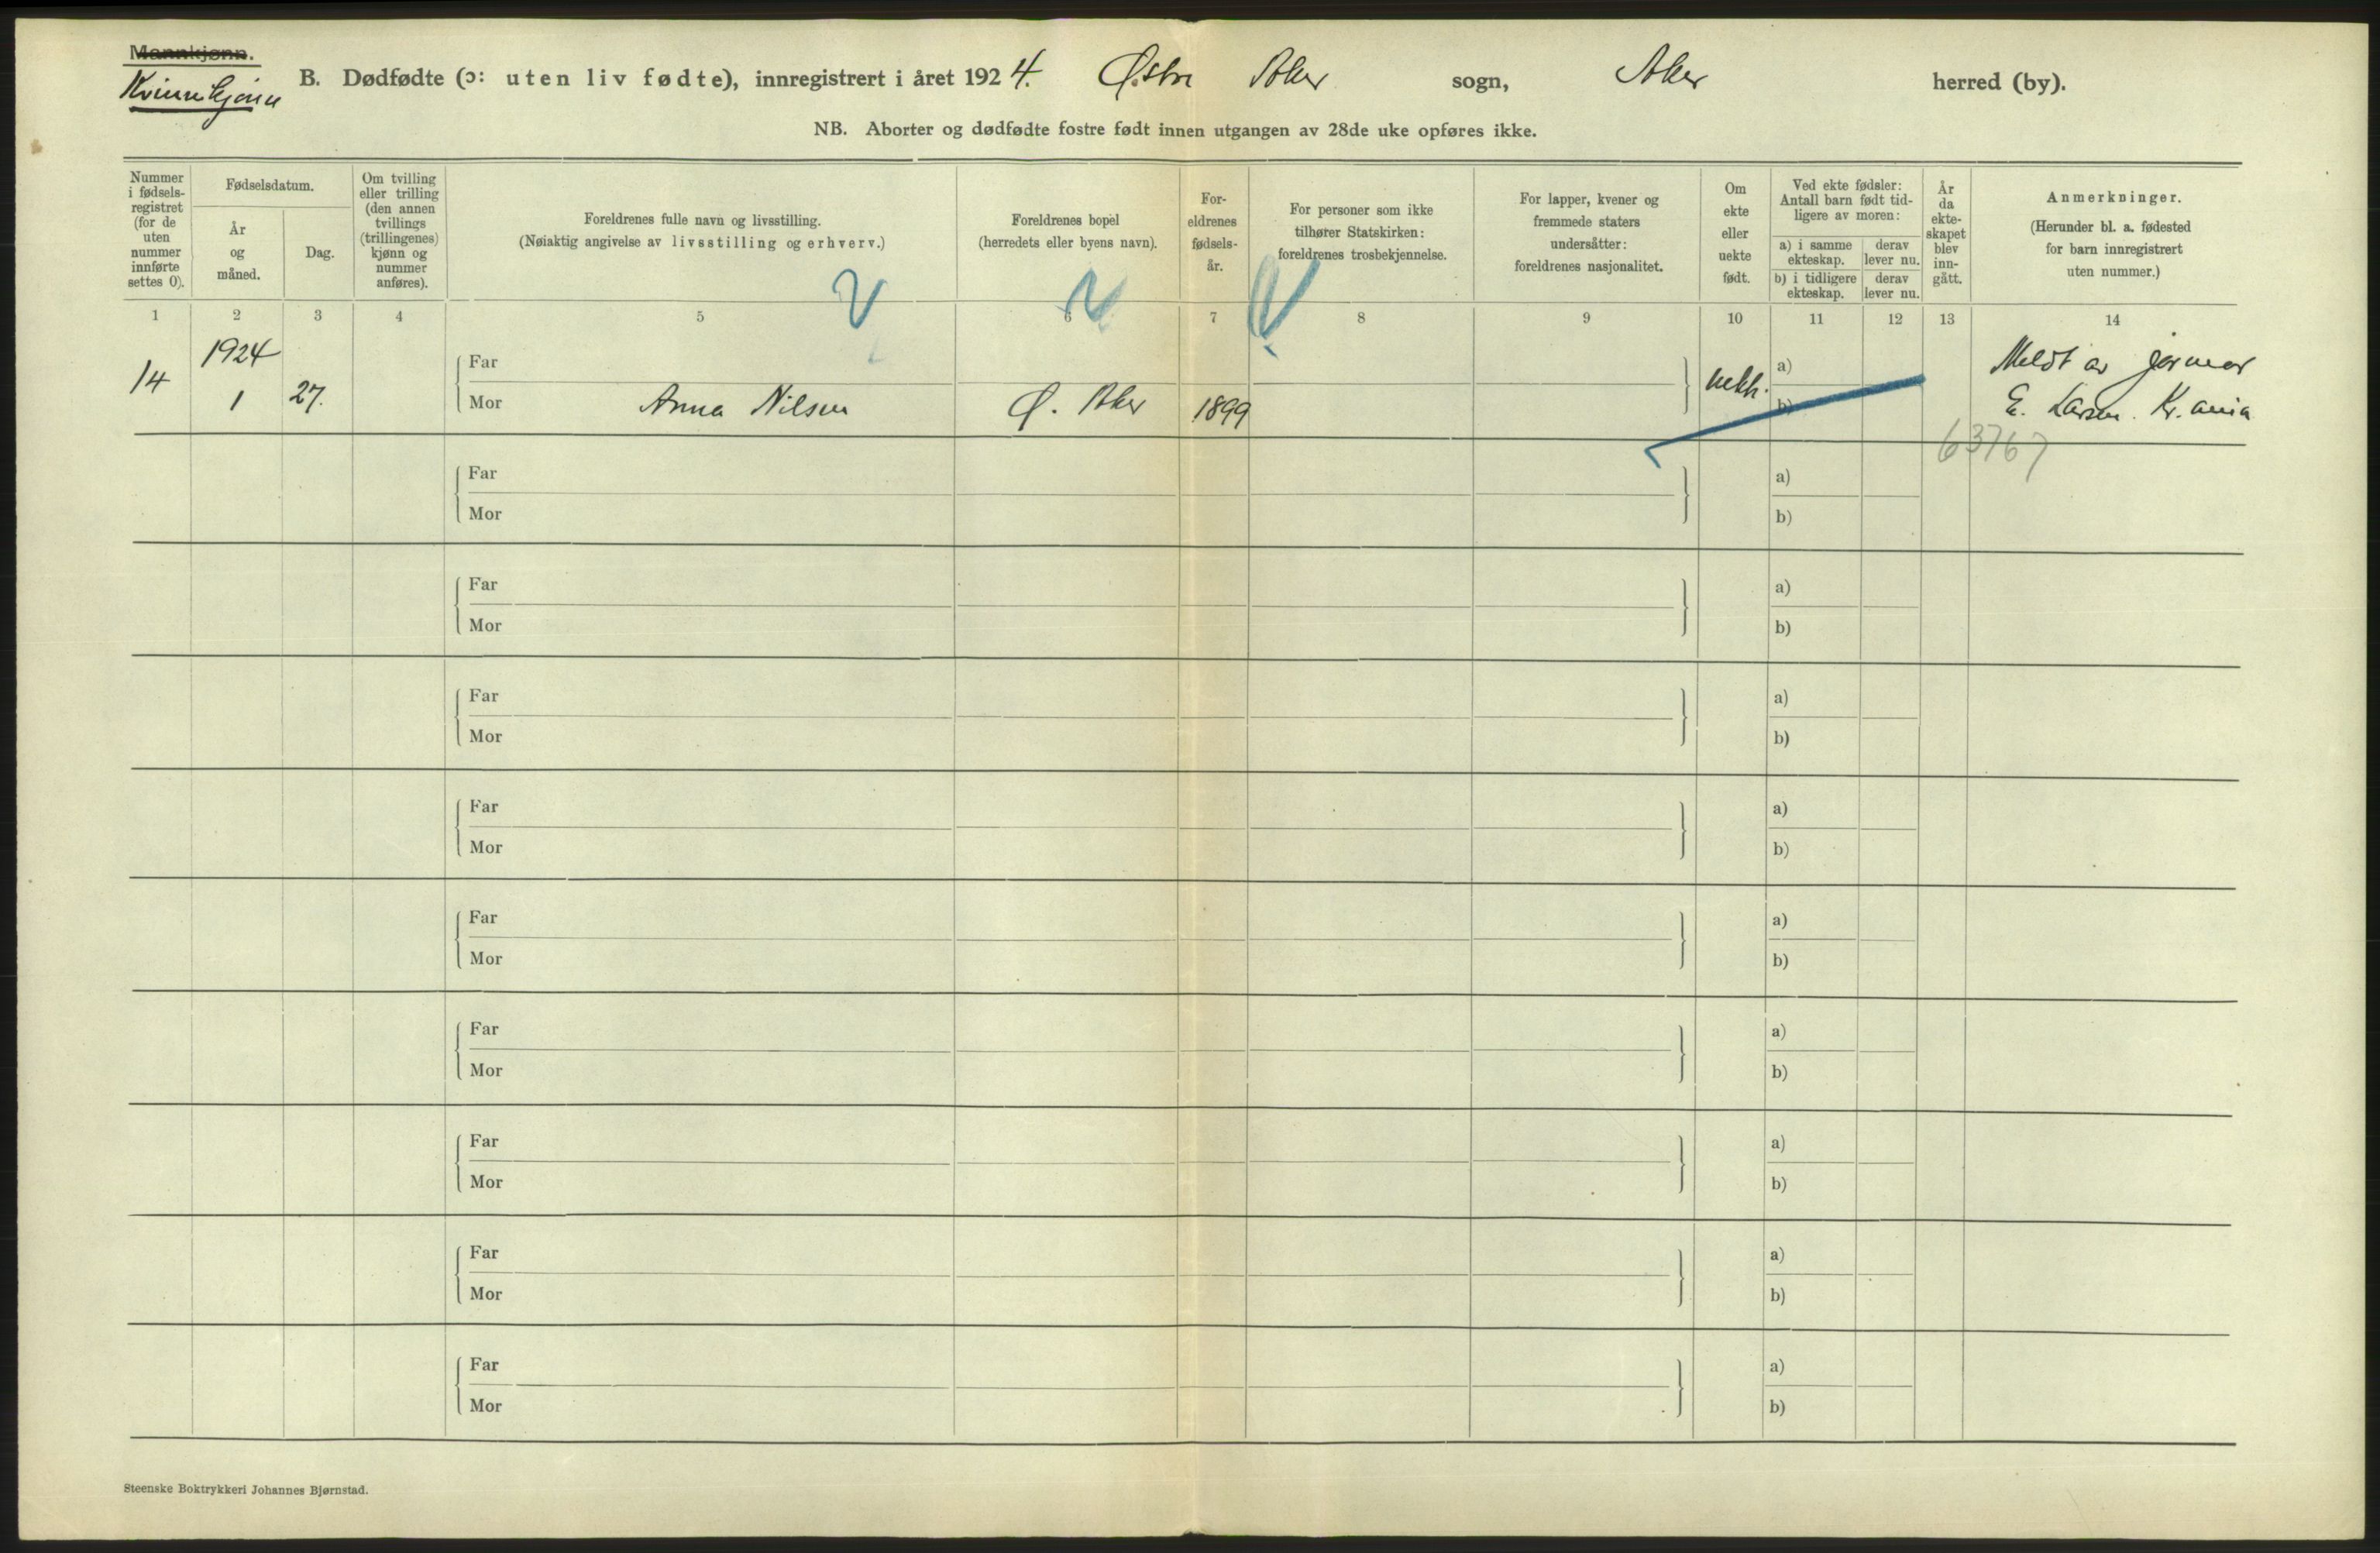 Mannkjønn.
Kvinnekjønn
B. Dødfødte (ɔ: uten liv fødte), innregistrert i året 1924. Østre Aker sogn, Aker herred (by).
NB. Aborter og dødfødte fostre født innen utgangen av 28de uke opføres ikke.
Nummer
i fødsels-
registret
(for de
uten
nummer
innførte
settes 0).
Fødselsdatum.
År
og
måned.
Dag.
Om tvilling
eller trilling
(den annen
tvillings
(trillingenes)
kjønn og
nummer
anføres).
Foreldrenes fulle navn og livsstilling.
(Nøiaktig angivelse av livsstilling og erhverv.)
Foreldrenes bopel
(herredets eller byens navn).
For-
eldrenes
fødsels-
år.
For personer som ikke
tilhører Statskirken:
foreldrenes trosbekjennelse.
For lapper, kvener og
fremmede staters
undersåtter:
foreldrenes nasjonalitet.
Om
ekte
eller
uekte
født.
Ved ekte fødsler:
Antall barn født tid-
ligere av moren:
a) i samme
ekteskap.
derav
lever nu.
b) i tidligere
ekteskap.
derav
lever nu.
År
da
ekte-
skapet
blev
inn-
gått.
Anmerkninger.
(Herunder bl. a. fødested
for barn innregistrert
uten nummer.)
1 2 3 4 5 6 7 8 9 10 11 12 13 14
14 1924
1 27.
Far
Mor Anna Nilsen Ø. Aker 1899
uekte.
a)
b)
Meldt av jormor
E. Larsen. Kr.ania
63767
Far a)
Mor b)
Far a)
Mor b)
Far a)
Mor b)
Far a)
Mor b)
Far a)
Mor b)
Far a)
Mor b)
Far a)
Mor b)
Far a)
Mor b)
Far a)
Mor b)
Steenske Boktrykkeri Johannes Bjørnstad.